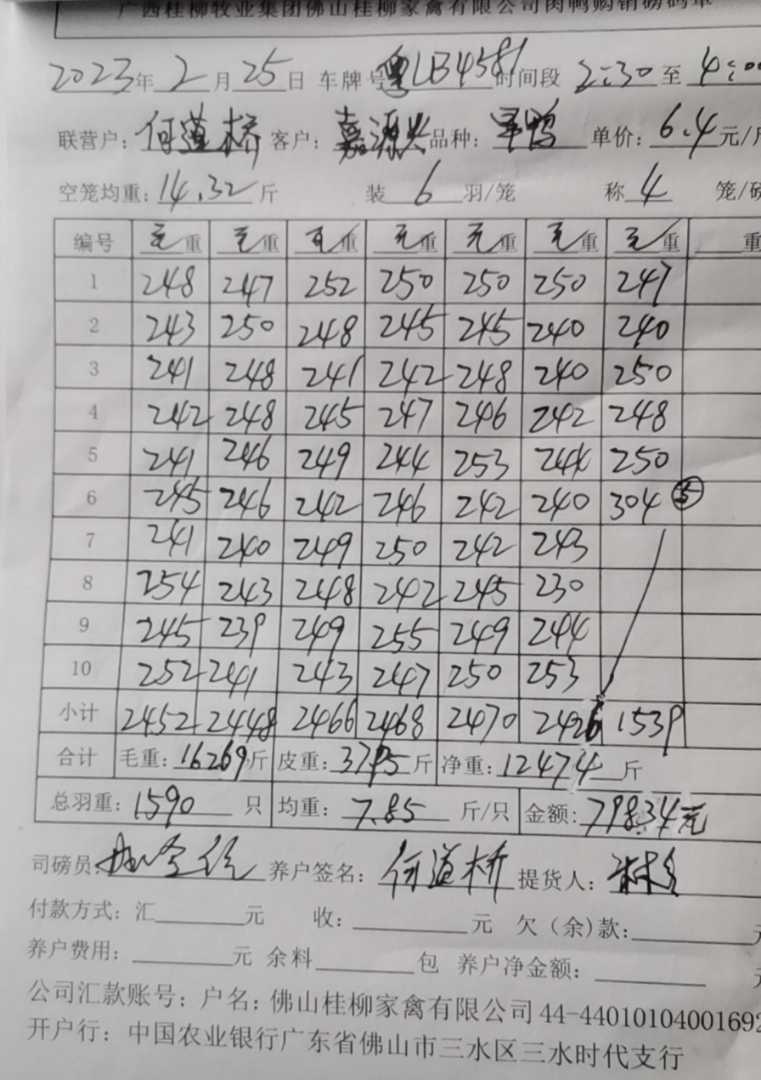 广西桂柳牧业集团佛山桂柳家禽有限公司肉鸭购销磅码单
2023年2月25日 车牌号粤LB4581时间段2:30至4:00
联营户:何道桥 客户:嘉源兴品种:单价:6.4元/斤
空笼均重:14.32斤 装6羽/笼 称4笼/磅
编号 毛重 毛重 毛重 毛重 毛重 毛重 毛重 重
1 248 247 252 250 250 250 247
2 243 250 248 245 245 240 240
3 241 248 241 242 248 240 250
4 242 248 245 247 246 242 248
5 241 246 249 244 253 244 250
6 245 246 242 246 242 240 304 ⑤
7 241 240 249 250 242 243
8 254 243 248 242 245 230
9 245 239 249 255 249 244
10 252 241 243 247 250 253
小计 2452 2448 2466 2468 2470 2426 1539
合计 毛重:16269斤 皮重:3795斤 净重:12474斤
总羽重:1590只 均重:7.85斤/只 金额:79834元
司磅员: 养户签名:何道桥 提货人:
付款方式:汇 元 收: 元 欠(余)款: 元
养户费用: 元 余料 包 养户净金额: 元
公司汇款账号:户名:佛山桂柳家禽有限公司 44-44010104001692
开户行:中国农业银行广东省佛山市三水区三水时代支行